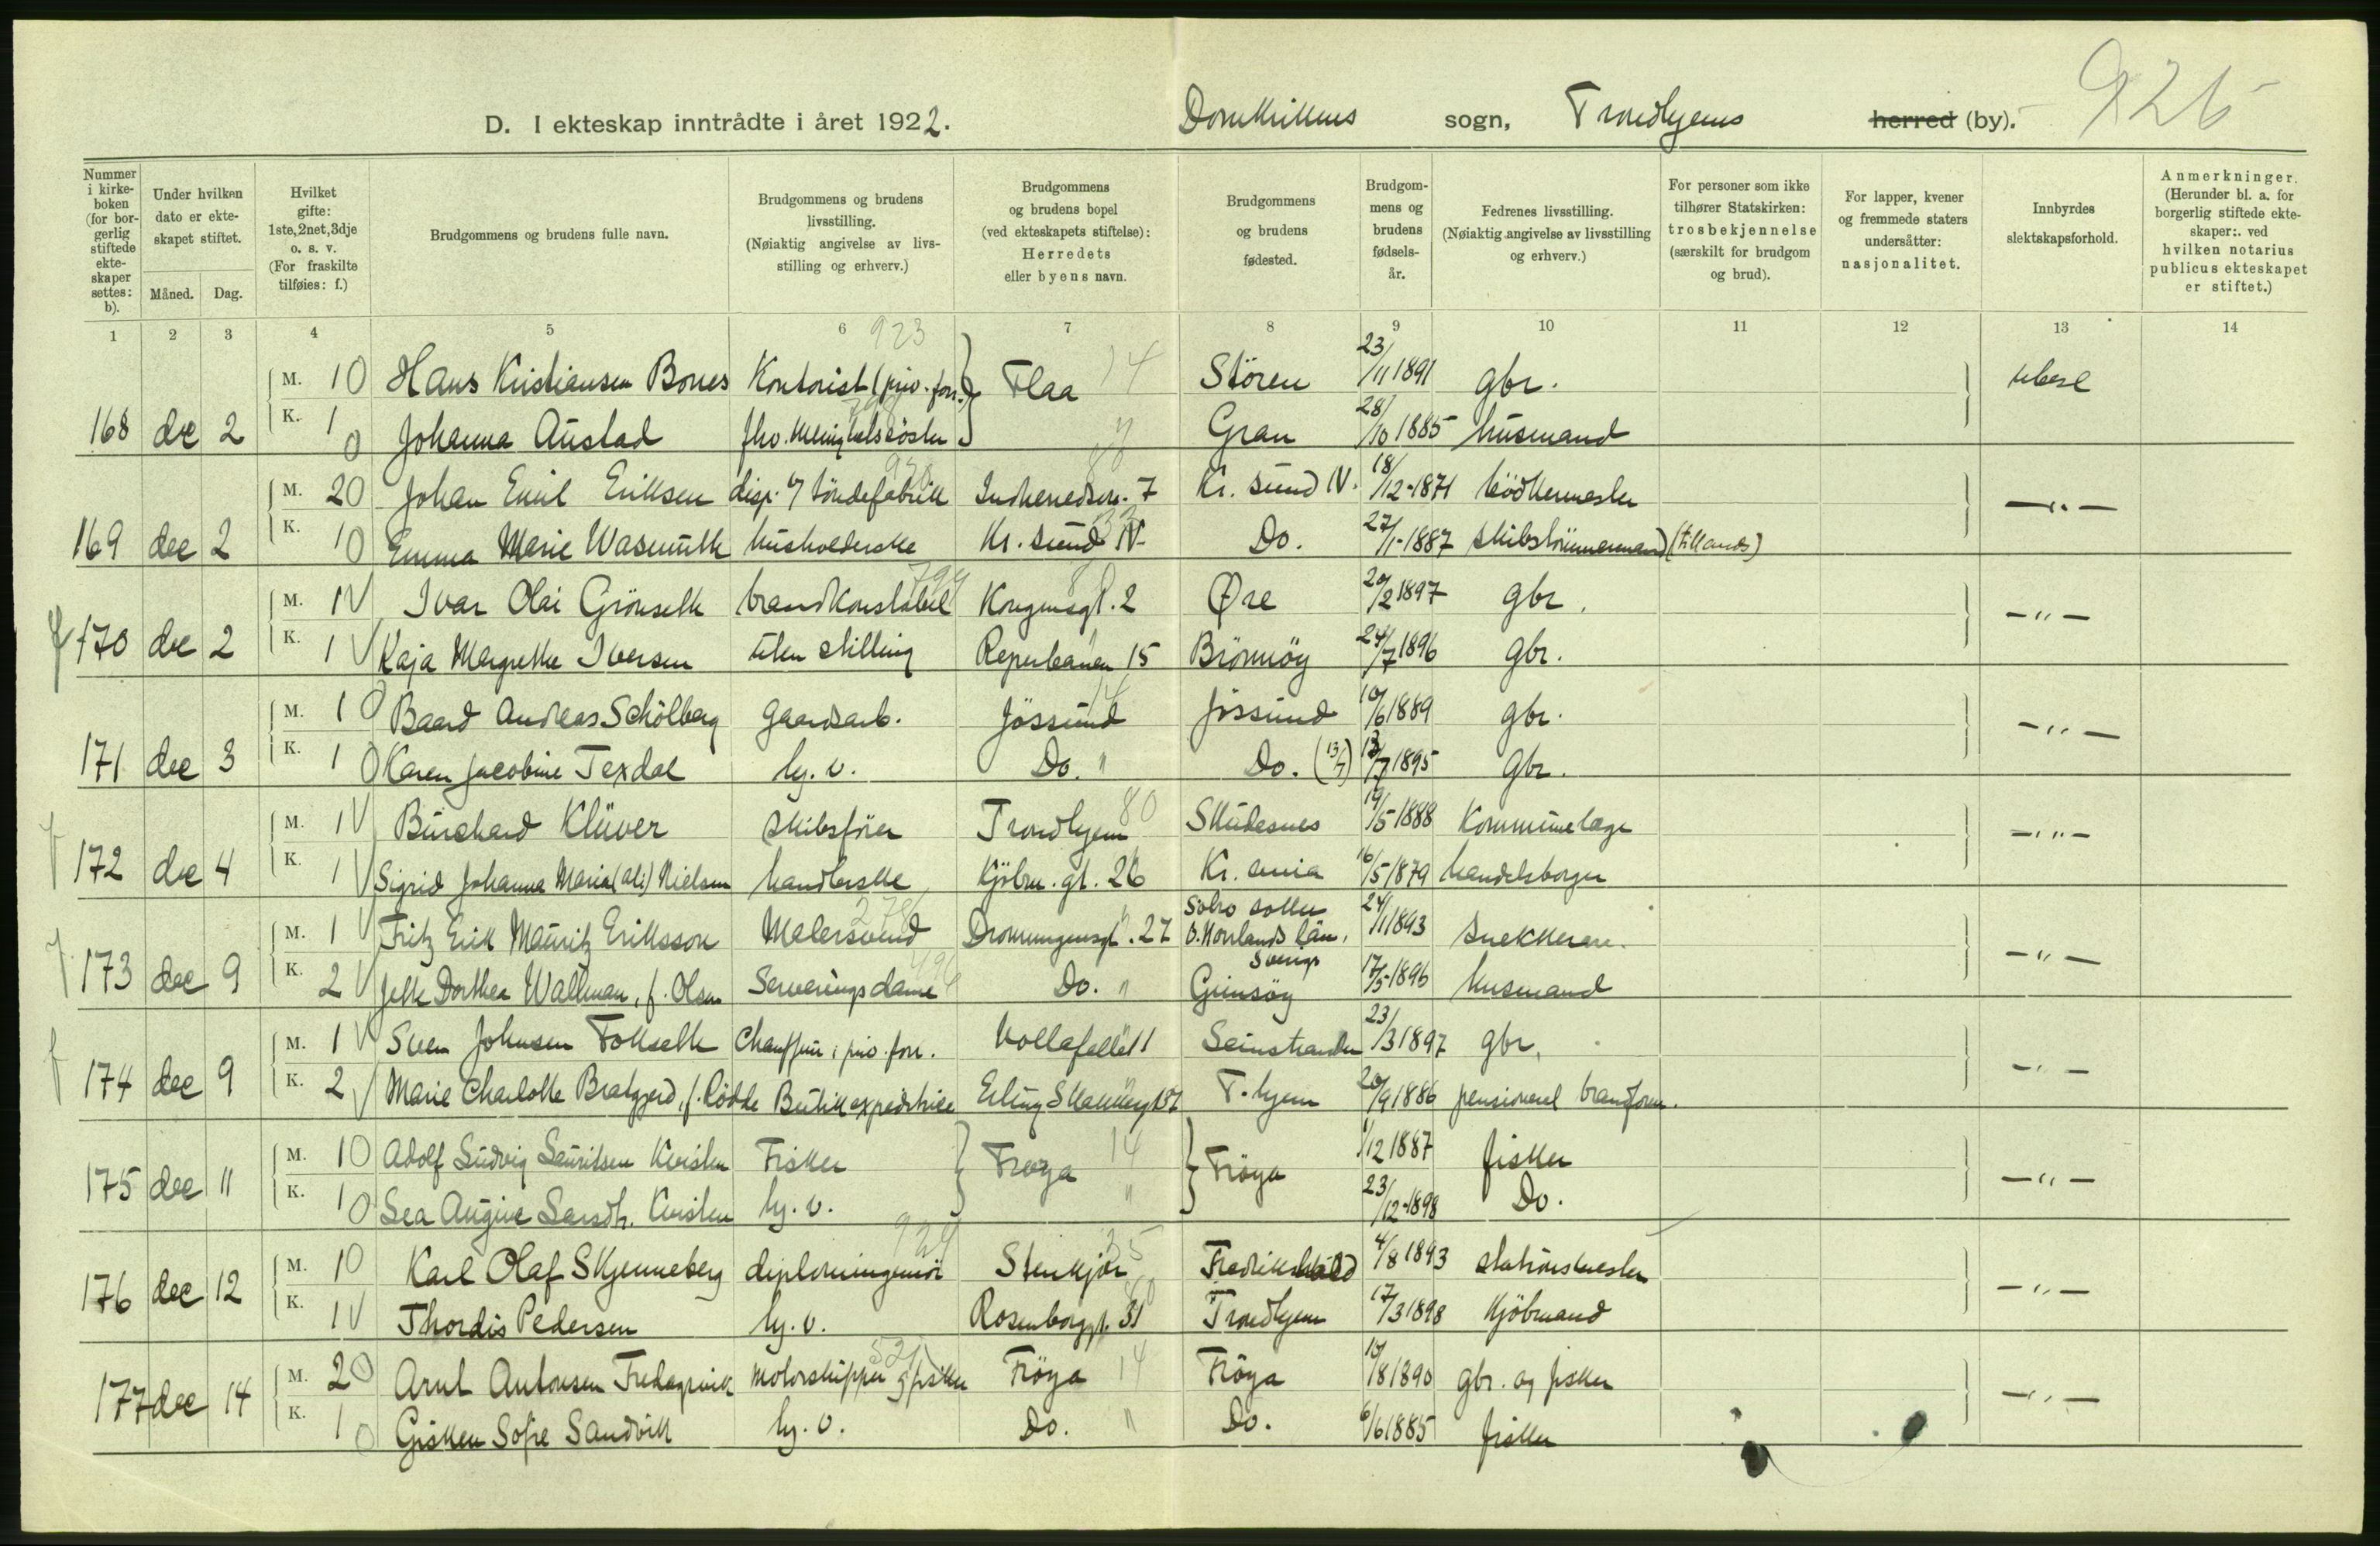 926
D. I ekteskap inntrådte i året 1922. Domkirkens sogn, Trondhjems herred (by).
Nummer i kirkeboken (for borgerlig stiftede ekteskaper settes: b).
Under hvilken dato er ekteskapet stiftet.
Måned. Dag.
Hvilket gifte: 1ste, 2net, 3dje o. s. v. (For fraskilte tilføies: f.)
Brudgommens og brudens fulle navn.
Brudgommens og brudens livsstilling. (Nøiaktig angivelse av livsstilling og erhverv.)
Brudgommens og brudens bopel (ved ekteskapets stiftelse): Herredets eller byens navn.
Brudgommens og brudens fødested.
Brudgommens og brudens fødselsår.
Fedrenes livsstilling. (Nøiaktig angivelse av livsstilling og erhverv.)
For personer som ikke tilhører Statskirken: trosbekjennelse (særskilt for brudgom og brud).
For lapper, kvener og fremmede staters undersåtter: nasjonalitet.
Innbyrdes slektskapsforhold.
Anmerkninger. (Herunder bl. a. for borgerlig stiftede ekteskaper: ved hvilken notarius publicus ekteskapet er stiftet.)
1 2 3 4 5 6 7 8 9 10 11 12 13 14
923
M. 10 Hans Kristiansen Bones Kontorist (priv. forr.) Flaa 14 Stören 23/11 1891 gbr. ubesl
168 dec 2 K. 10 Johanna Austad fhv. Gran 28/10 1885 husmand
M. 20 Johan Emil Eriksen disp. v/ töndefabrik Indherredsv. 7 Kr. sund N. 18/12-1871 bödkermester —"—
169 dec 2 K. 10 Emma Marie Wasmuth husholderske Kr. sund N Do. 27/1-1887 skibstömmermand (tillands)
M. 1 Ivar Olai Grönseth brandkonstabel Kongensgt. 2 Øre 20/2 1897 gbr. —"—
170 dec 2 K. 1 Kaja Margrethe Iversen uten stilling Reperbanen 15 Brönnöy 24/7 1896 gbr.
M. 10 Baard Andreas Schölberg Gaardsarb. Jössund Jössund 10/6 1889 gbr. —"—
171 dec 3 K. 10 Karen Jacobine Texdal hj. v. Do. " Do. (13/7) 13/7 1895 gbr.
M. 1 Burchard Klüver skibsförer Trondhjem 80 Skudesnes 19/5 1888 Kommunelæge —"—
172 dec 4 K. 1 Sigrid Johanna Maria Nielsen handlerske Kjöbm. gt. 26 Kr. ania 16/5 1879 handelsborger
M. 1 Fritz Erik Mauritz Eriksson Malersvend Dronningensgt. 27 24/11 1893 snekkeren. —"—
173 dec 9 K. 2 Wallman, f. Olsen Serveringsdame Do. " Gimsöy 17/5-1896 husmand
M. 1 Sven Johnsen Folkseth Chauffeur i priv. forr. 23/3 1897 gbr. —"—
174 dec 9 K. 2 Marie Charlotte f. Rödde Butikexpeditrice Erling T.hjem 20/9 1886 pensioneret
M. 10 Adolf Ludvig Lauritsen Kvisten Fisker Fröya 14 Fröya 1/12 1887 fisker —"—
175 dec 11 K. 10 Lea Kvisten hj. v. " 23/12-1898 Do.
M. 10 Karl Olaf Skjenneberg diplomingeniör Stenkjær 35 Fredrikshald 4/8 1893 stationsmester —"—
176 dec 12 K. 1 Thordis Pedersen hj. v. Rosenborggt. 31 Trondhjem 17/3 1898 Kjöbmand
M. 20 Arnt Antonsen Motorskipper & fisker Fröya 14 Fröya 10/8 1890 gbr. og fisker —"—
177 dec 14 K. 10 Gisken Sofie Sandvik hj. v. Do. " Do. 6/6 1885 fisker